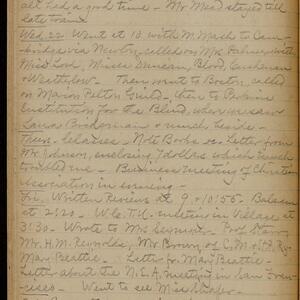 all had a good time - Mr Mead stayed till
late train
Wed. 22 Went at 10 with M. Mach to Cam-
bridge via Newton, called on Mrs. Palmer, with
Miss Lord, Misses Duncan, Blood, Cushman
& Weatherlow. Then went to Boston, called
on Marion Pelton Guild - then to Perkins
Institution for the Blind, where we saw
Laura Bridgman & much beside -
Thurs. Classes - Note Book &c. Letter from
Mr Johnson, enclosing 7 dollars which
troubled me - Business meeting of Christian
Association in evening -
Fri. Written Reviews at 9 & 10:55.
at 2:20. W.C.T.U. meeting in Village at
3:30. Wrote to Mrs Seymour - Prof. 
Mr. H. M. Reynolds, Mr. Brown of C. M. & St. P. Ry
Mary Beattie. Letter fr Mary Beattie -
Letter about the N.E.A. meeting in San Fran-
cisco - Went to see Miss